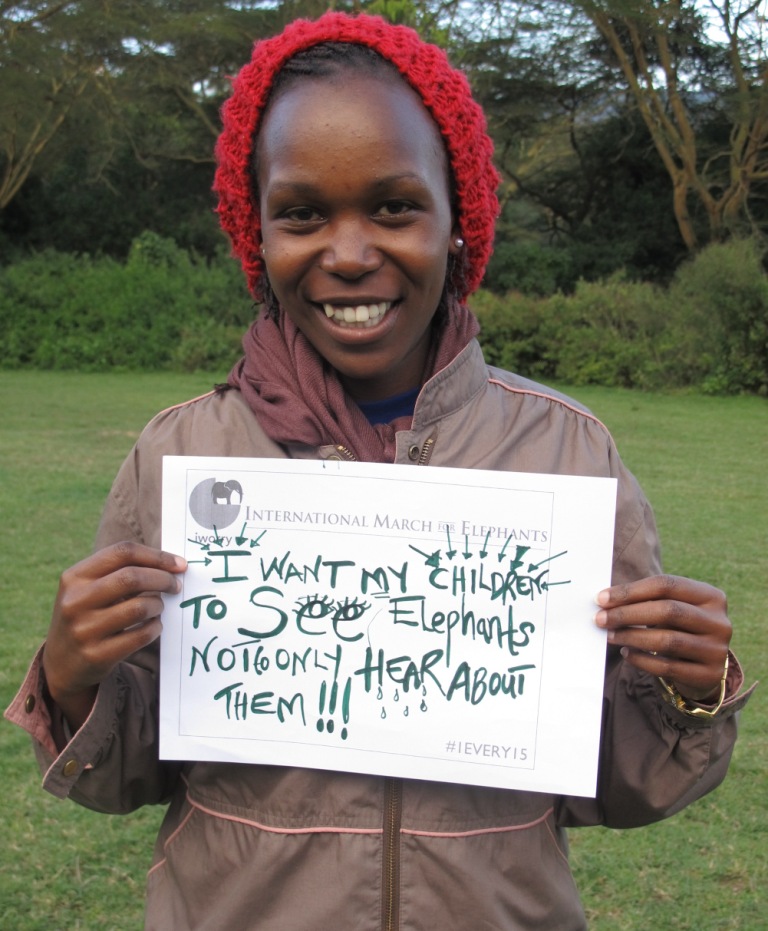 iworry
INTERNATIONAL MARCH FOR ELEPHANTS
I WANT MY CHILDREN
TO SEE Elephants
NOT ONLY HEAR ABOUT
THEM!!!
#1EVERY15